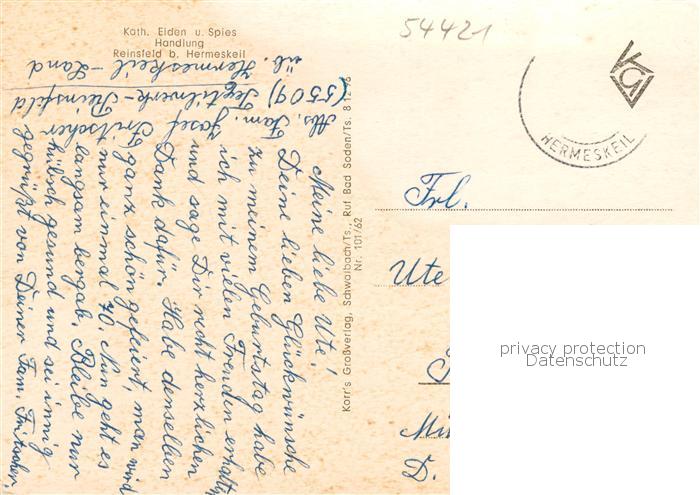 Kath. Eiden u. Spies
Handlung
Reinsfeld b. Hermeskeil
54421
HERMESKEIL
Abs. Fam. Josef Fritscher
(5509) Textilwerk-Reinsfeld
üb. Hermeskeil-Land
Meine liebe Ute!
Deine lieben Glückwünsche
zu meinem Geburtstag habe
ich mit vielen Freuden erhalten
und sage Dir recht herzlichen
Dank dafür. Habe denselben
ganz schön gefeiert, man wird
nur einmal 70. Nun geht es
langsam bergab. Bleibe nur
hübsch gesund und sei innig
gegrüßt von Deiner Fam. Fritscher.
Korr's Großverlag, Schwalbach/Ts., Ruf Bad Soden/Ts. 8 12 76
Nr. 101/62
Frl.
Ute
D.
privacy protection
Datenschutz